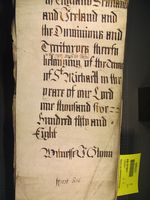 of England Scotland
and Ireland and
the Dominions and
Territorys thereto
belonging, of the
of St Michaell in the
yeare of our Lord
one thousand
Hundred fifty and
Eight